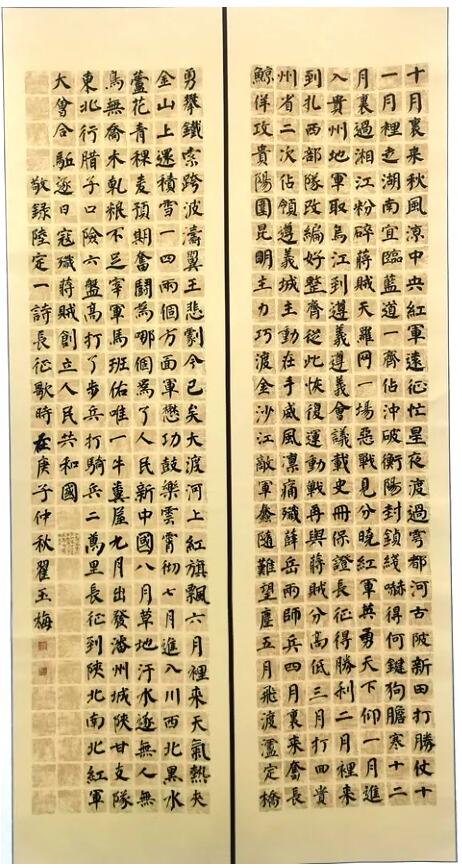 十月裏来秋風涼中央紅軍遠征忙星夜渡過雩都河古陂新田打勝仗十
一月裡走湖南宜臨藍道一齊佔沖破衡陽封鎖綫嚇得何鍵狗膽寒十二
月裏過湘江粉碎蔣賊天羅网一場惡戰見分曉紅軍英勇天下仰一月進
入貴州地軍取烏江到遵義遵義會議載史冊保證長征得勝利二月裡来
到扎西部隊改編好整齊從此恢復運動戰再與蔣賊分高低三月打四貴
州省二次佔領遵義城主動在手威風凛痛殲薛岳兩師兵四月裏来奮長
鯨佯攻貴陽圍昆明主力巧渡金沙江敵軍隨難望塵五月飛渡瀘定橋
勇攀鐵索跨波濤翼王悲劇今已矣大渡河上紅旗飄六月裡来天氣熱夾
金山上還積雪一四兩個方面軍懋功鼓樂雲霄彻七月進入川西北黑水
蘆花青稞麦預期奮鬪為哪個為了人民新中國八月草地汗水逐無人無
鳥無喬木乾糧不足宰軍馬班佑唯一牛糞屋九月出發潘州城陝甘支隊
東北行腊子口險六盤高打了步兵打騎兵二萬里長征到陝北南北紅軍
大會合駈逐日寇殲蔣賊創立人民共和國
敬録陸定一詩長征歌時在庚子仲秋翟玉梅